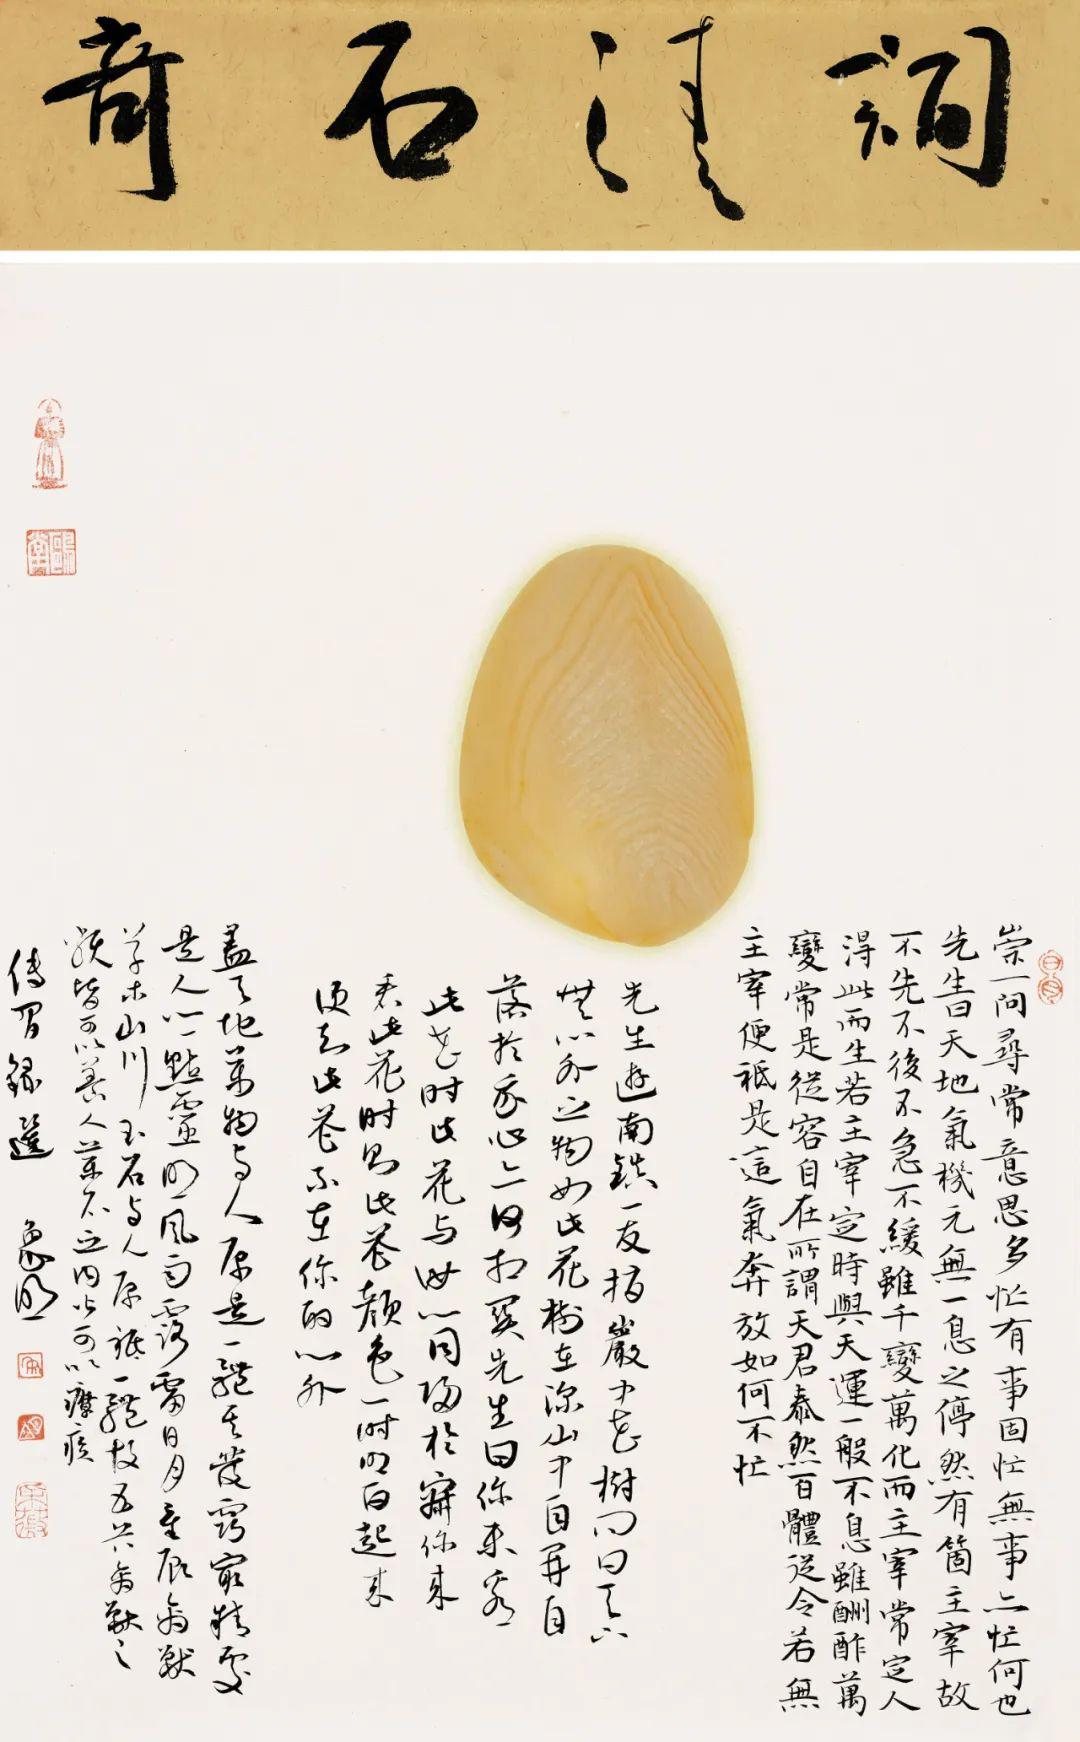 詞清石奇
崇一問尋常意思多忙有事固忙無事亦忙何也
先生曰天地氣機元無一息之停然有箇主宰故
不先不後不急不緩雖千變萬化而主宰常定人
得此而生若主宰定時與天運一般不息雖酬酢萬
變常是從容自在所謂天君泰然百體從令若無
主宰便祗是這氣奔放如何不忙
先生遊南鎮一友指巖中花樹問曰天下
無心外之物如此花樹在深山中自開自
落於我心亦何相關先生曰你未看
此花時此花与汝心同歸於寂你來
看此花時則此花顏色一時明白起來
便知此花不在你的心外
蓋天地萬物与人原是一體其發竅最精處
是人心一點靈明風雨露雷日月星辰禽獸
草木山川土石与人原祗一體故五穀禽獸之
類皆可以養人藥石之皆可以療疾
傳習錄選